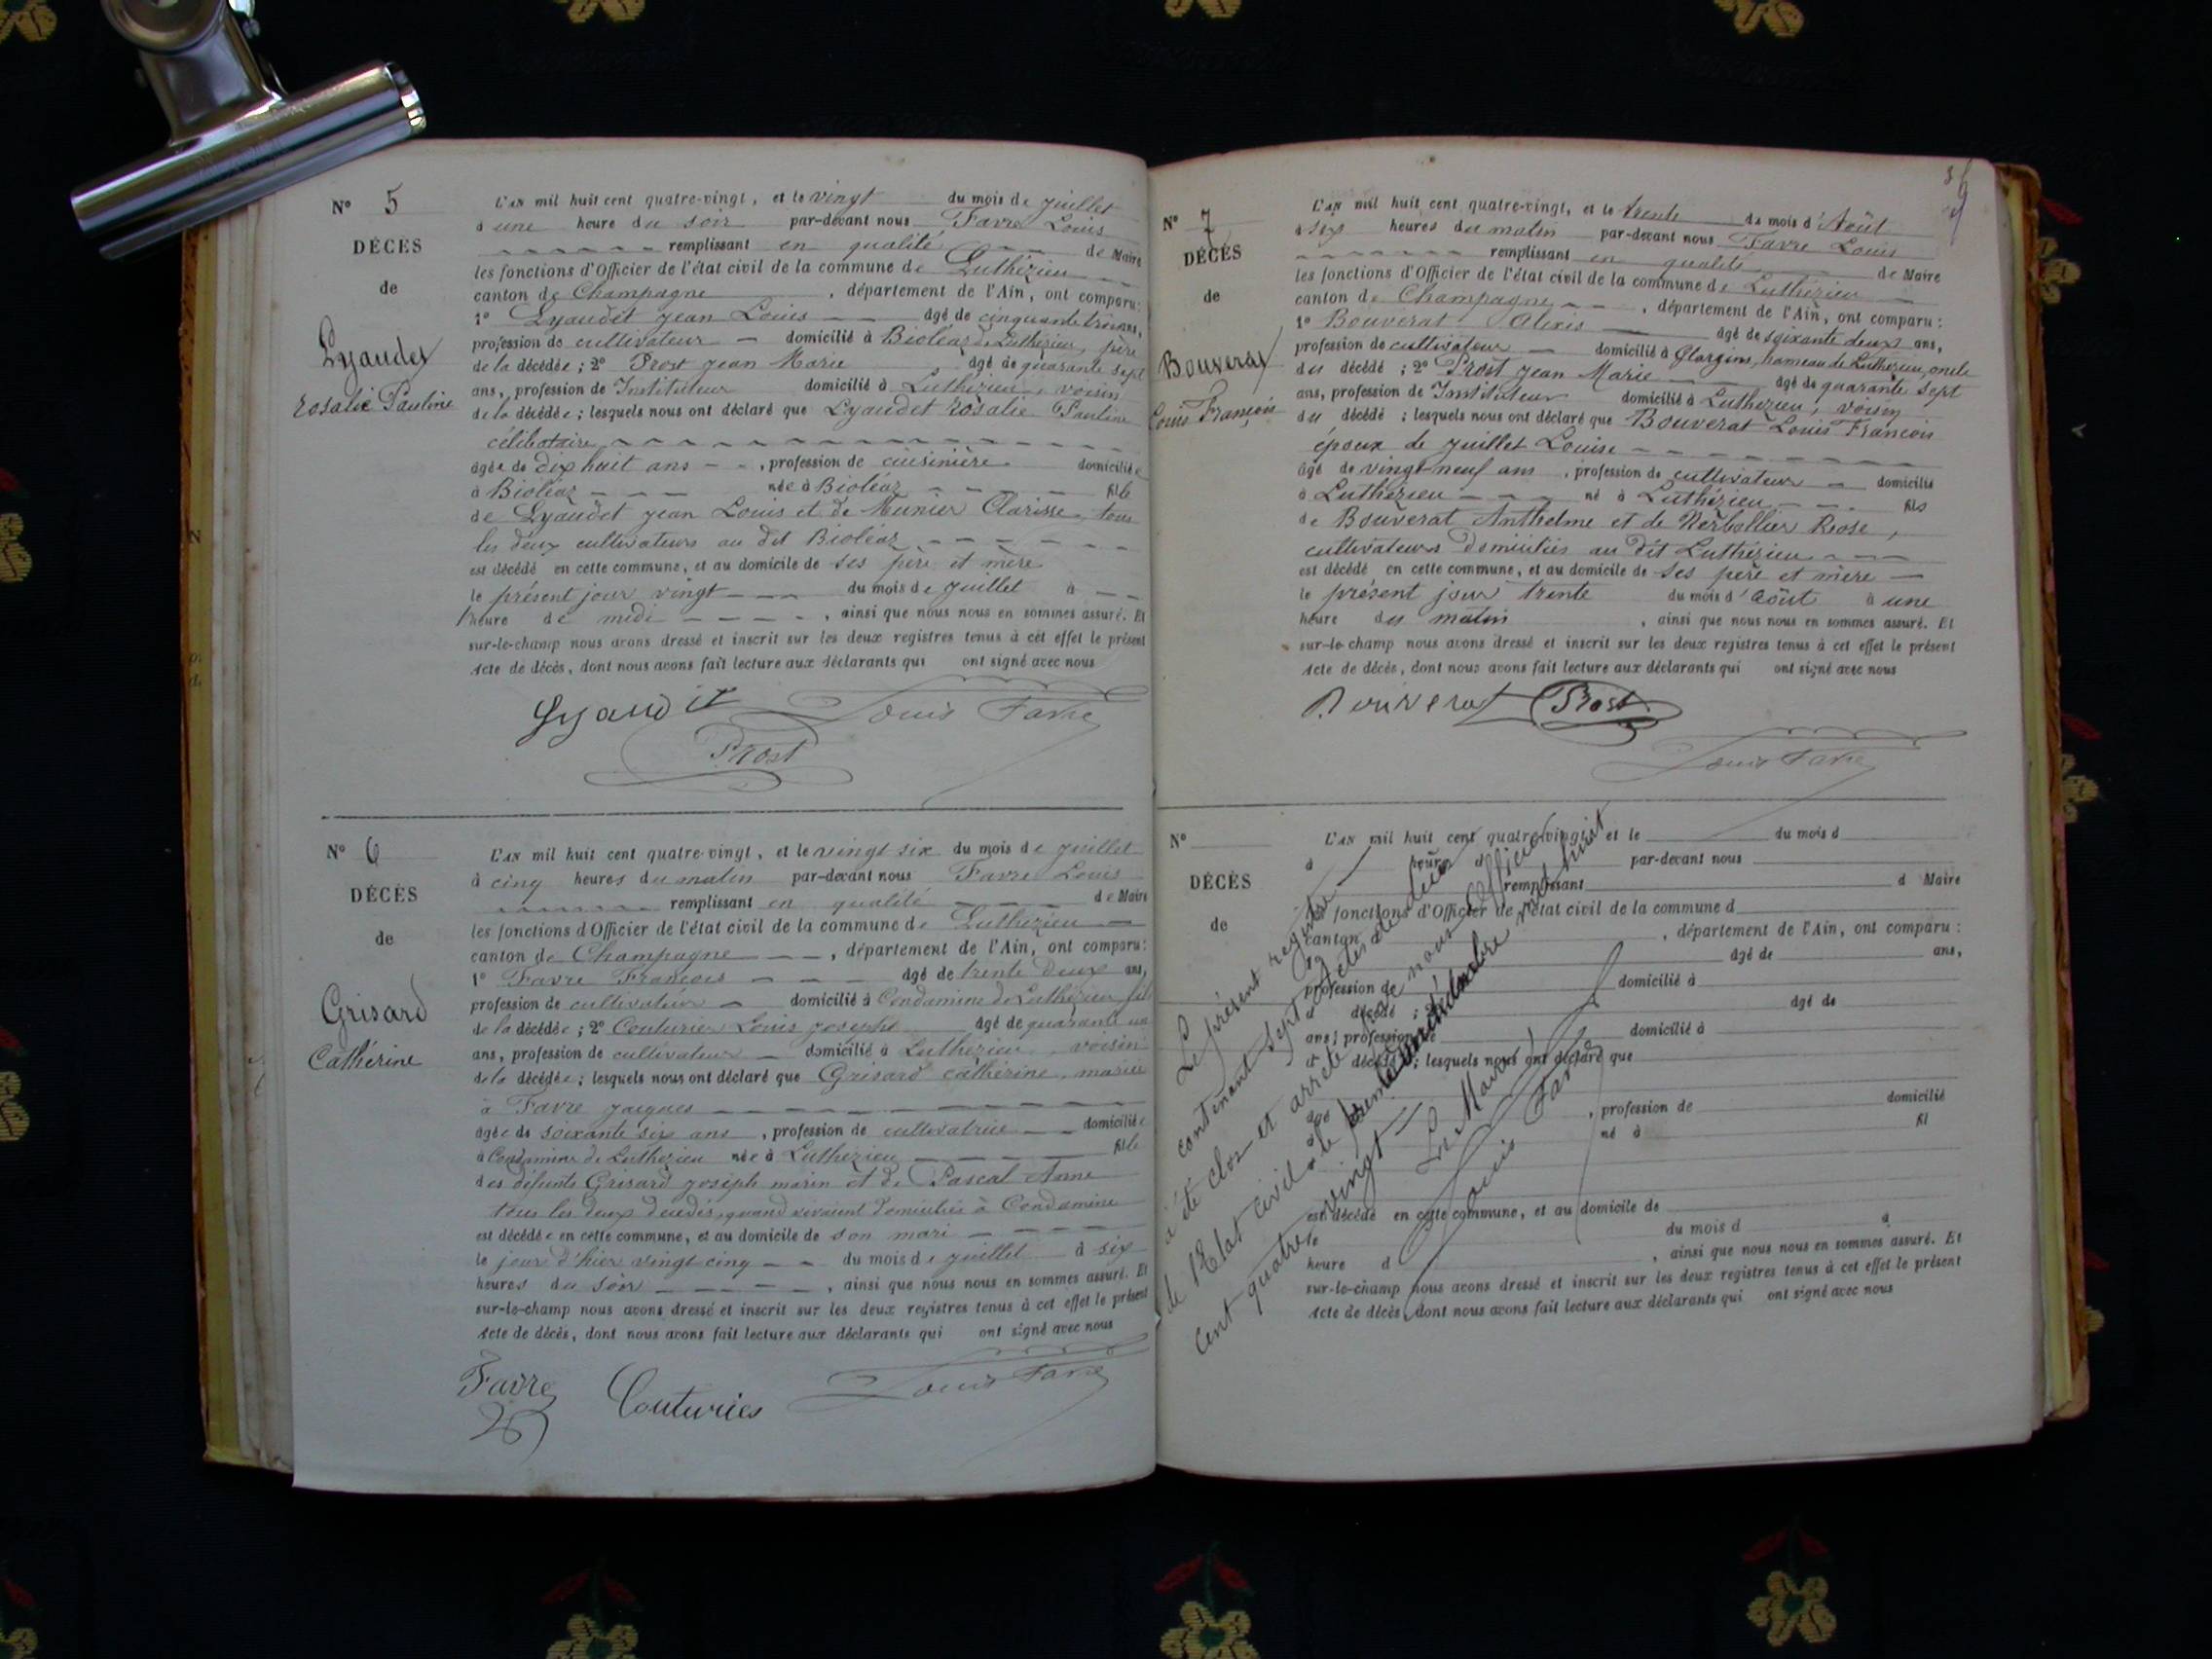 N° 5
DÉCÈS
de
Lyaudet
rosalie Pauline
L'AN mil huit cent quatre-vingt, et le vingt du mois de juillet
à une heure du soir par-devant nous Favre Louis
remplissant en qualité de Maire
les fonctions d'Officier de l'état civil de la commune de Luthézieu
canton de Champagne, département de l'Ain, ont comparu:
1° Lyaudet jean Louis âgé de cinquante trois ans,
profession de cultivateur domicilié à Bioléaz de Luthézieu, père
de la décédée; 2° Prost jean Marie âgé de quarante sept
ans, profession de Instituteur domicilié à Luthézieu, voisin
de la décédée; lesquels nous ont déclaré que Lyaudet rosalie Pauline
célibataire
âgée de dix huit ans, profession de cuisinière domiciliée
à Bioléaz née à Bioléaz fille
de Lyaudet jean Louis et de Munier Clarisse, tous
les deux cultivateurs au dit Bioléaz
est décédé en cette commune, et au domicile de ses père et mère
le présent jour vingt du mois de juillet à
heure de midi, ainsi que nous nous en sommes assuré. Et
sur-le-champ nous avons dressé et inscrit sur les deux registres tenus à cet effet le présent
Acte de décès, dont nous avons fait lecture aux déclarants qui ont signé avec nous
Lyaudet Louis Favre
Prost
N° 6
DÉCÈS
de
Grisard
Cathérine
L'AN mil huit cent quatre-vingt, et le vingt six du mois de juillet
à cinq heures du matin par-devant nous Favre Louis
remplissant en qualité de Maire
les fonctions d'Officier de l'état civil de la commune de Luthézieu
canton de Champagne, département de l'Ain, ont comparu:
1° Favre François âgé de trente deux ans,
profession de cultivateur domicilié à Condamine de Luthézieu, fils
de la décédée; 2° Couturier Louis josephe âgé de quarante un
ans, profession de cultivateur domicilié à Luthézieu, voisin
de la décédée; lesquels nous ont déclaré que Grisard cathérine, mariée
à Favre jacques
âgée de soixante six ans, profession de cultivatrice domiciliée
à Condamine de Luthézieu née à Luthézieu fille
des défunts Grisard joseph marin et de Pascal Anne
tous les deux décédés, quand vivaient domiciliés à Condamine
est décédée en cette commune, et au domicile de son mari
le jour d'hier vingt cinq du mois de juillet à six
heures du soir, ainsi que nous nous en sommes assuré. Et
sur-le-champ nous avons dressé et inscrit sur les deux registres tenus à cet effet le présent
Acte de décès, dont nous avons fait lecture aux déclarants qui ont signé avec nous
Favre Couturier Louis Favre
N° 7
DÉCÈS
de
Bouverat
Louis François
L'AN mil huit cent quatre-vingt, et le trente du mois d'Août
à six heures du matin par-devant nous Favre Louis
remplissant en qualité de Maire
les fonctions d'Officier de l'état civil de la commune de Luthézieu
canton de Champagne, département de l'Ain, ont comparu:
1° Bouverat Alexis âgé de soixante deux ans,
profession de cultivateur domicilié à Glargins, hameau de Luthézieu, oncle
du décédé; 2° Prost jean Marie âgé de quarante sept
ans, profession de Instituteur domicilié à Luthézieu, voisin
du décédé; lesquels nous ont déclaré que Bouverat Louis François
époux de juillet Louise
âgé de vingt neuf ans, profession de cultivateur domicilié
à Luthézieu né à Luthézieu fils
de Bouverat Anthelme et de Nerbollier Rose,
cultivateurs domiciliés au dit Luthézieu
est décédé en cette commune, et au domicile de ses père et mère
le présent jour trente du mois d'août à une
heure du matin, ainsi que nous nous en sommes assuré. Et
sur-le-champ nous avons dressé et inscrit sur les deux registres tenus à cet effet le présent
Acte de décès, dont nous avons fait lecture aux déclarants qui ont signé avec nous
Bouverat Prost
Louis Favre
N°
DÉCÈS
de
L'AN mil huit cent quatre-vingt, et le du mois d
à heure d par-devant nous
remplissant d Maire
les fonctions d'Officier de l'état civil de la commune d
canton , département de l'Ain, ont comparu:
1° âgé de ans,
profession de domicilié à
d décédé; 2° âgé de
ans, profession de domicilié à
d décédé; lesquels nous ont déclaré que
âgé , profession de domicilié
à né à fil
est décédé en cette commune, et au domicile de
le du mois d à
heure d , ainsi que nous nous en sommes assuré. Et
sur-le-champ nous avons dressé et inscrit sur les deux registres tenus à cet effet le présent
Acte de décès, dont nous avons fait lecture aux déclarants qui ont signé avec nous
Le présent registre
contenant sept actes de décès
a été clos et arrêté par nous Officier
de l'Etat civil le trente un décembre mil huit
cent quatre vingt
Le Maire
Louis Favre